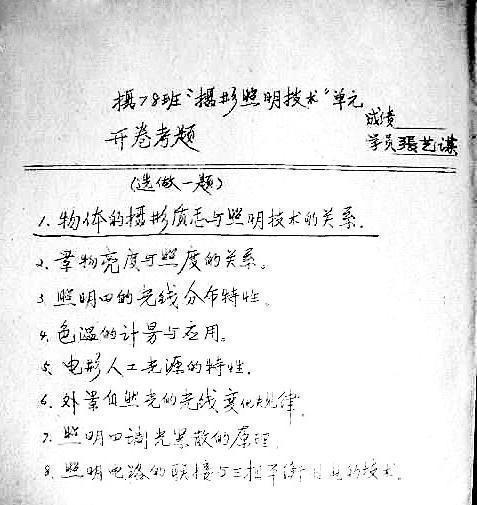 摄78班“摄影照明技术”单元
成绩
开卷考题
学员 張艺谋
(选做一题)
1. 物体的摄影质态与照明技术的关系.
2. 景物亮度与照度的关系。
3 照明的光线分布特性。
4. 色温的计算与应用。
5. 电影人工光源的特性.
6. 外景自然光的光线变化规律.
7. 照明调光 的原理
8. 照明电路的联接与三相平衡 的技术.